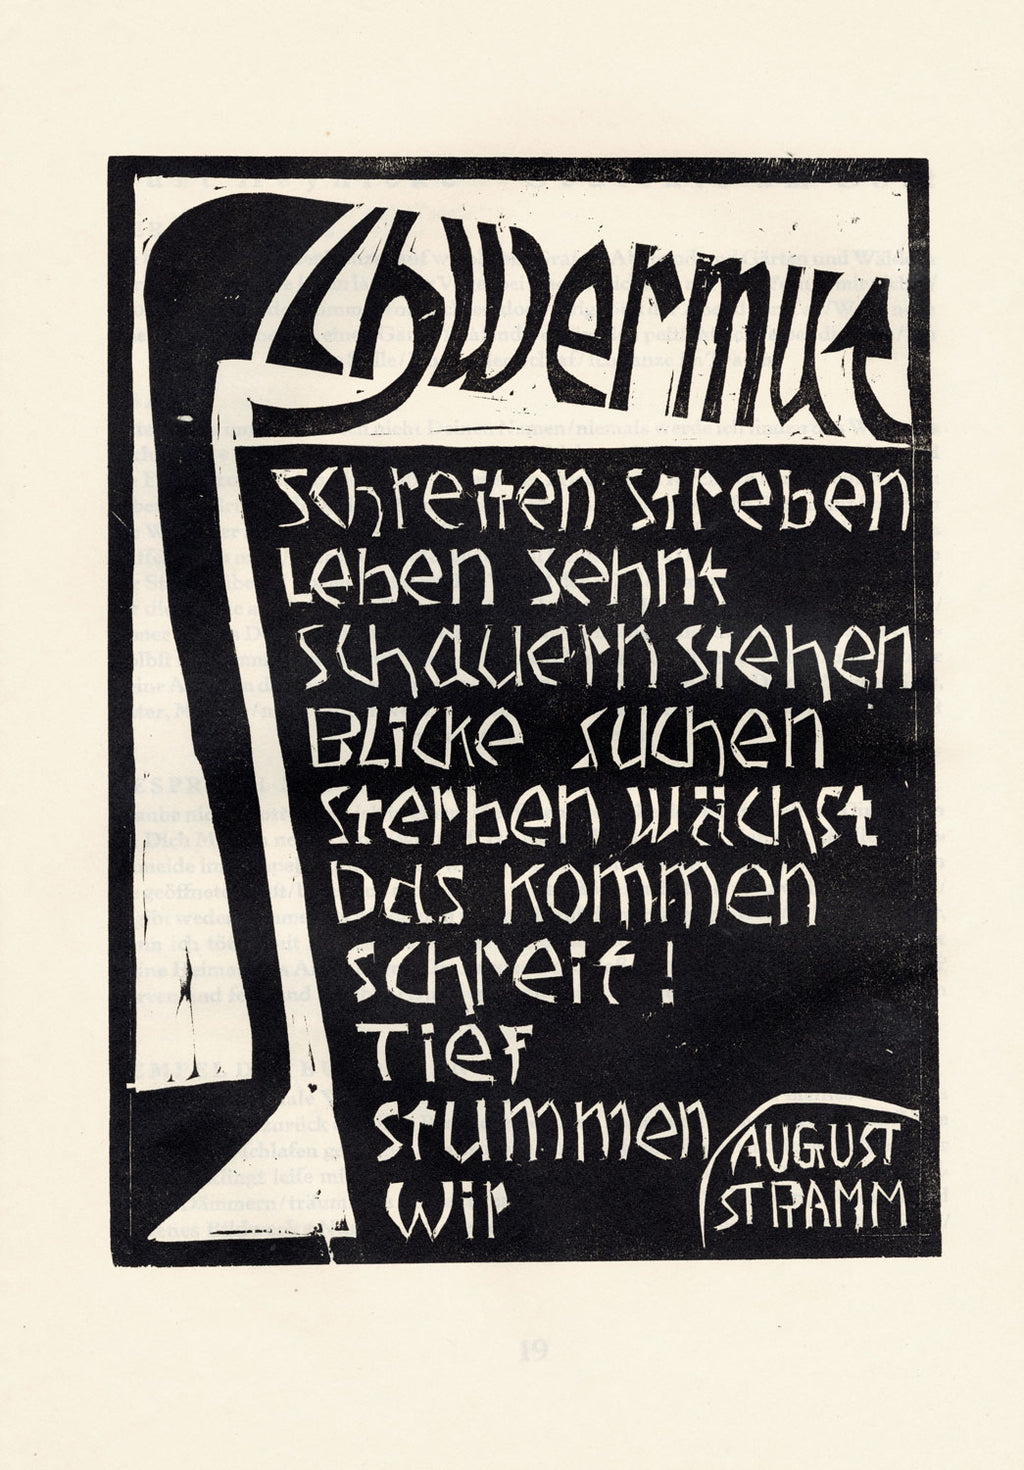 Schwermut
Schreiten streben
Leben sehnt
Schauern stehen
Blicke suchen
Sterben wächst
Das Kommen
schreit!
Tief
stummen
wir
AUGUST
STRAMM
19